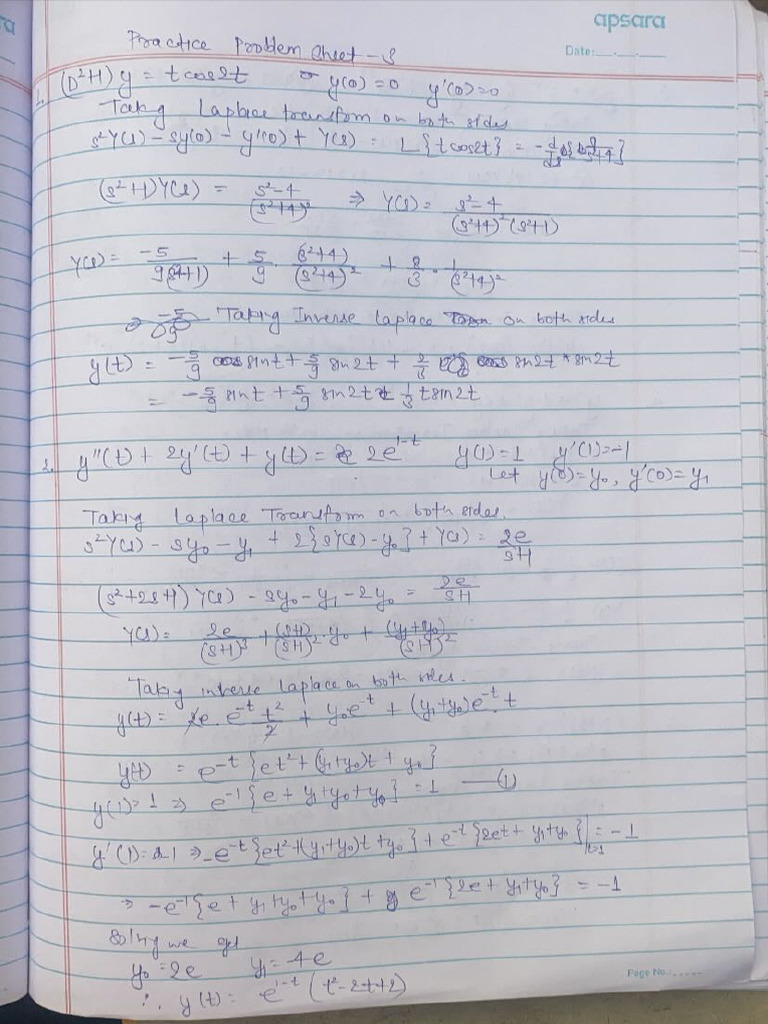 apsara
Practice Problem Sheet - 3
Date:
1. (D²+1) y = t cos2t y(0) = 0 y'(0) = 0
Taking Laplace transform on both sides
s²Y(s) - sy(0) - y'(0) + Y(s) = L{t cos2t} = -d/ds{s/s²+4}
(s²+1)Y(s) = s²-4/(s²+4)² ⇒ Y(s) = s²-4/(s²+4)²(s²+1)
Y(s) = -5/9(s²+1) + 5/9 · (s²+4)/(s²+4)² + 8/3 · 1/(s²+4)²
Taking Inverse Laplace on both sides
y(t) = -5/9 sint + 5/9 sin2t + 2/3 sin2t * sin2t
= -5/9 sint + 5/9 sin2t + 1/3 t sin2t
2. y''(t) + 2y'(t) + y(t) = 2e^{1-t} y(1) = 1 y'(1) = -1
Let y(0) = y₀, y'(0) = y₁
Taking Laplace Transform on both sides.
s²Y(s) - sy₀ - y₁ + 2{sY(s) - y₀} + Y(s) = 2e/s+1
(s²+2s+1) Y(s) - sy₀ - y₁ - 2y₀ = 2e/s+1
Y(s) = 2e/(s+1)³ + (s+1)/(s+1)² · y₀ + (y₁+y₀)/(s+1)²
Taking inverse Laplace on both sides.
y(t) = 2e · e^{-t} t²/2 + y₀e^{-t} + (y₁+y₀)e^{-t} · t
y(t) = e^{-t} {et² + (y₁+y₀)t + y₀}
y(1) = 1 ⇒ e^{-1} {e + y₁+y₀+y₀} = 1 — (1)
y'(1) = -1 ⇒ -e^{-t} {et² + (y₁+y₀)t + y₀} + e^{-t} {2et + y₁+y₀}|t=1 = -1
⇒ -e^{-1} {e + y₁+y₀+y₀} + e^{-1} {2e + y₁+y₀} = -1
Solving we get
y₀ = 2e y₁ = -4e
∴ y(t) = e^{1-t} (t²-2t+2)
Page No.: